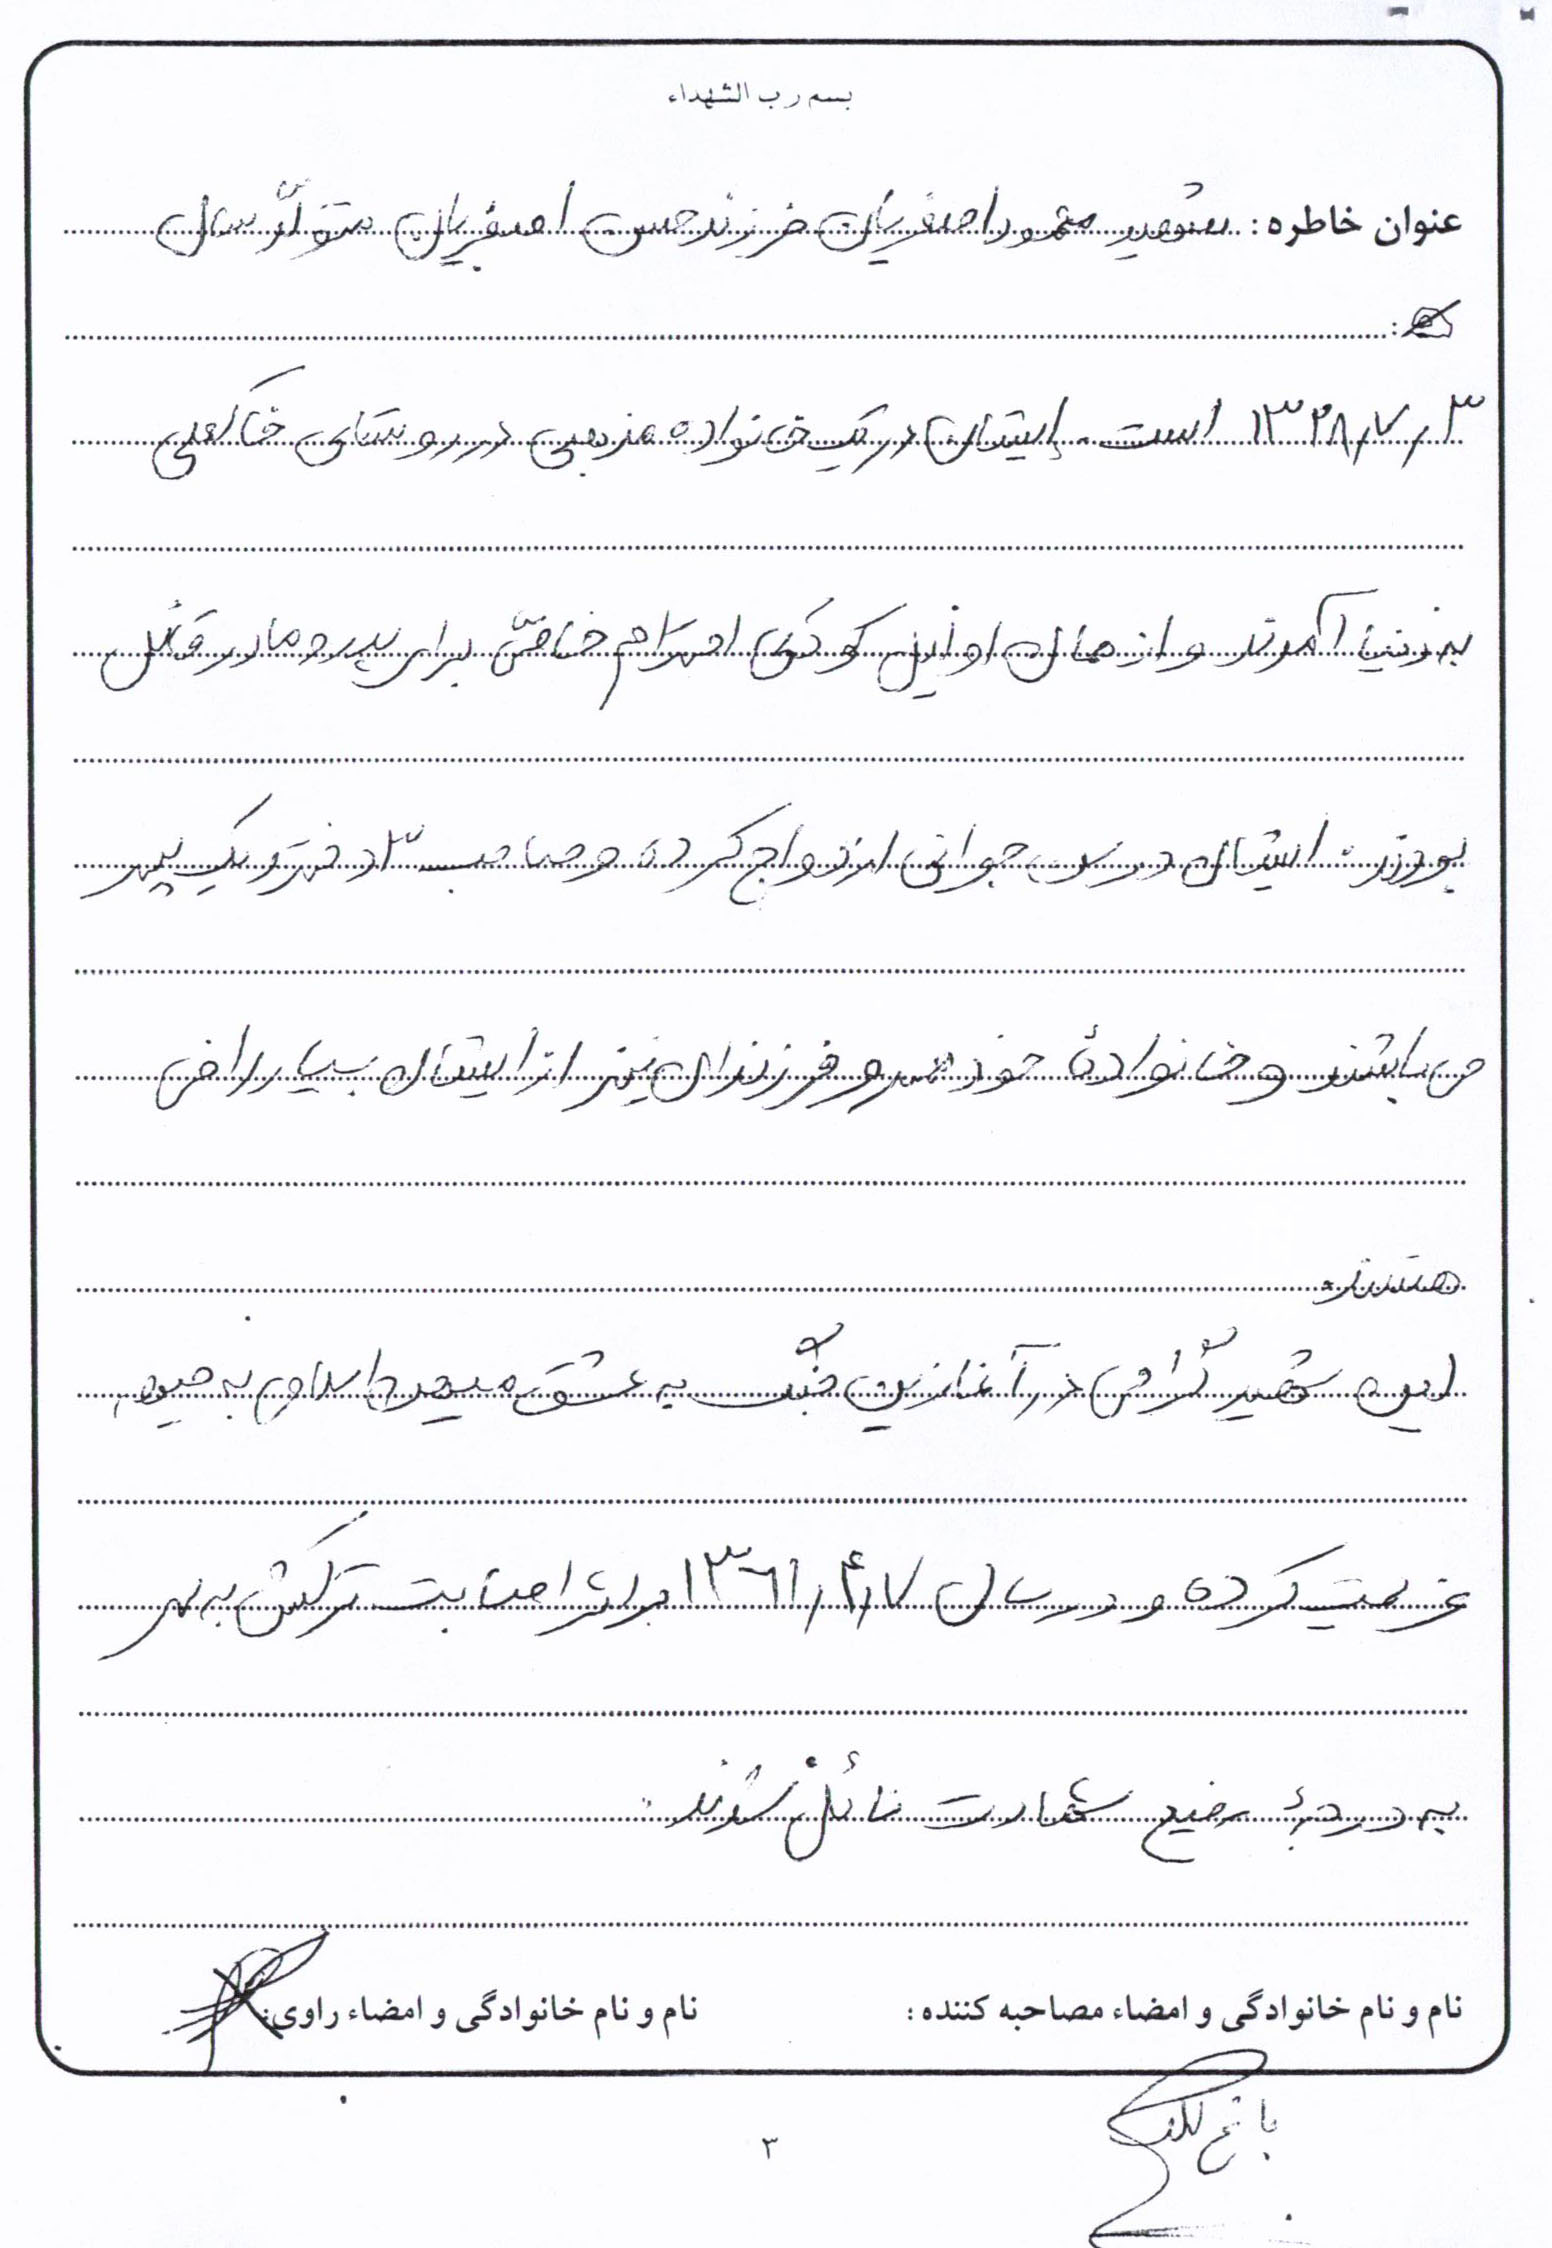 بسم رب الشهداء
عنوان خاطره : شهید محمود اصغریان فرزند حسن اصغریان متولد سال
۱۳۲۸/۷/۳ است. ایشان در یک خانواده مذهبی در روستای خاکعلی
به دنیا آمدند و از همان اوایل کودکی احترام خاصی برای پدر و مادر قائل
بودند. ایشان در سن جوانی ازدواج کرده و صاحب ۳ دختر و یک پسر
می باشند و خانوادهٔ خود همسر و فرزندان نیز از ایشان بسیار راضی
هستند.
این شهید گرامی در آغازین جنگ به عشق میهن اسلامی به جبهه
عزیمت کرده و در سال ۱۳۶۱/۴/۷ بر اثر اصابت ترکش به سر
به درجهٔ رفیع شهادت نائل شدند.
نام و نام خانوادگی و امضاء مصاحبه کننده :
نام و نام خانوادگی و امضاء راوی:
۳